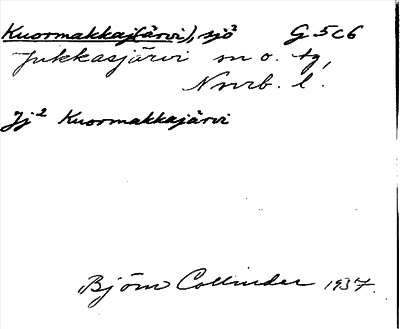 Kuormakkaj(ärvi), sjö² G 5c6
Jukkasjärvi sn o. tg,
Nnrb. l.
Jj² Kuormakkajärvi
Björn Collinder 1937.